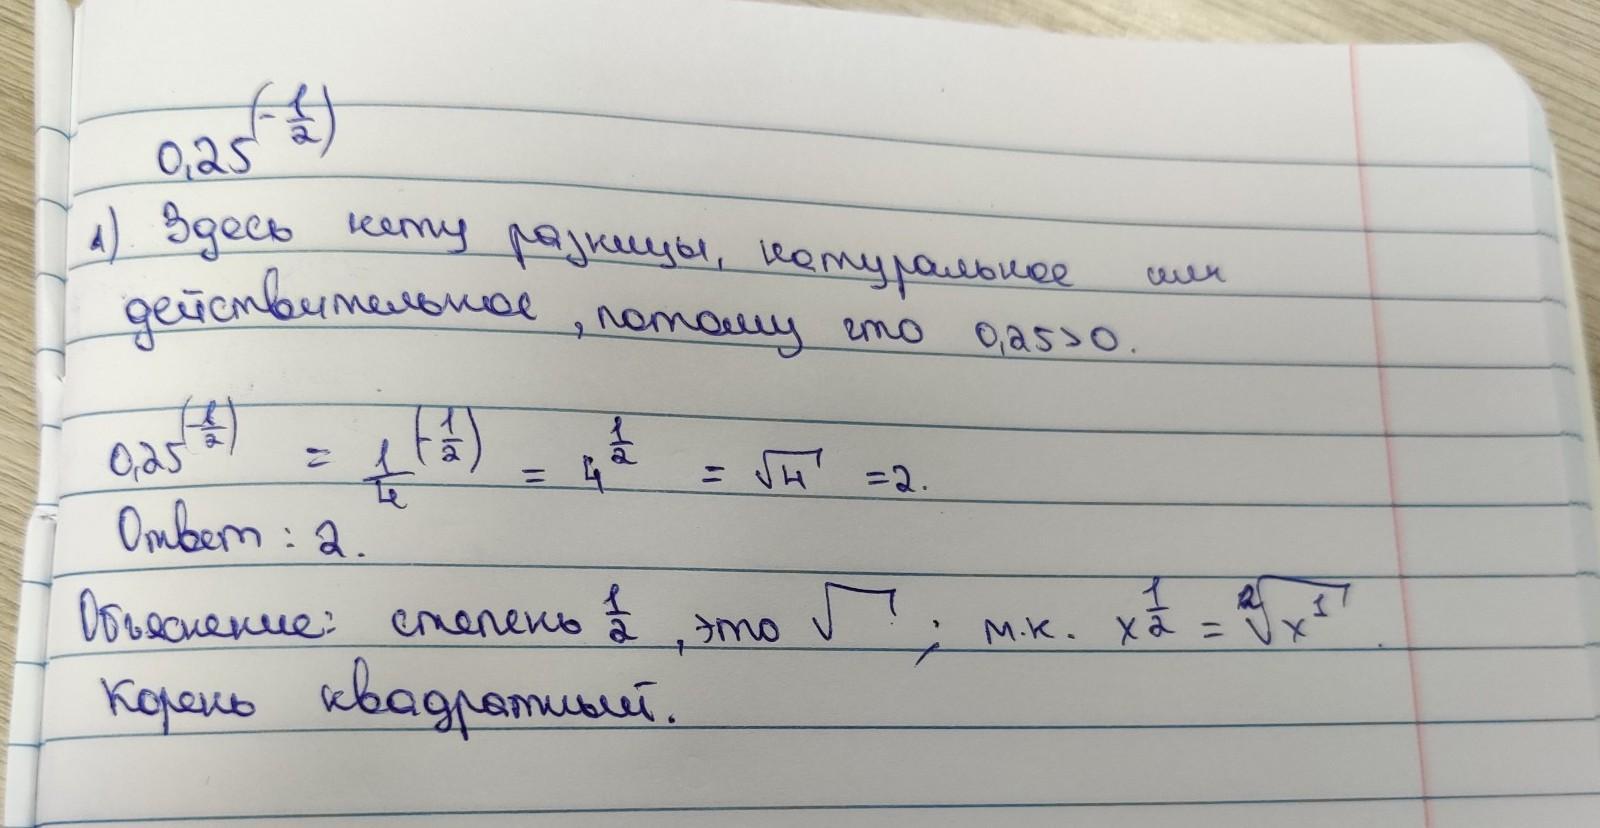 0,25^(-1/2)
1) Здесь нету разницы, натуральное или
действительное, потому что 0,25>0.
0,25^(-1/2) = 1/4^(-1/2) = 4^1/2 = √4 = 2.
Ответ: 2.
Объяснение: степень 1/2, это √ ; т.к. x^1/2 = ²√x¹.
Корень квадратный.